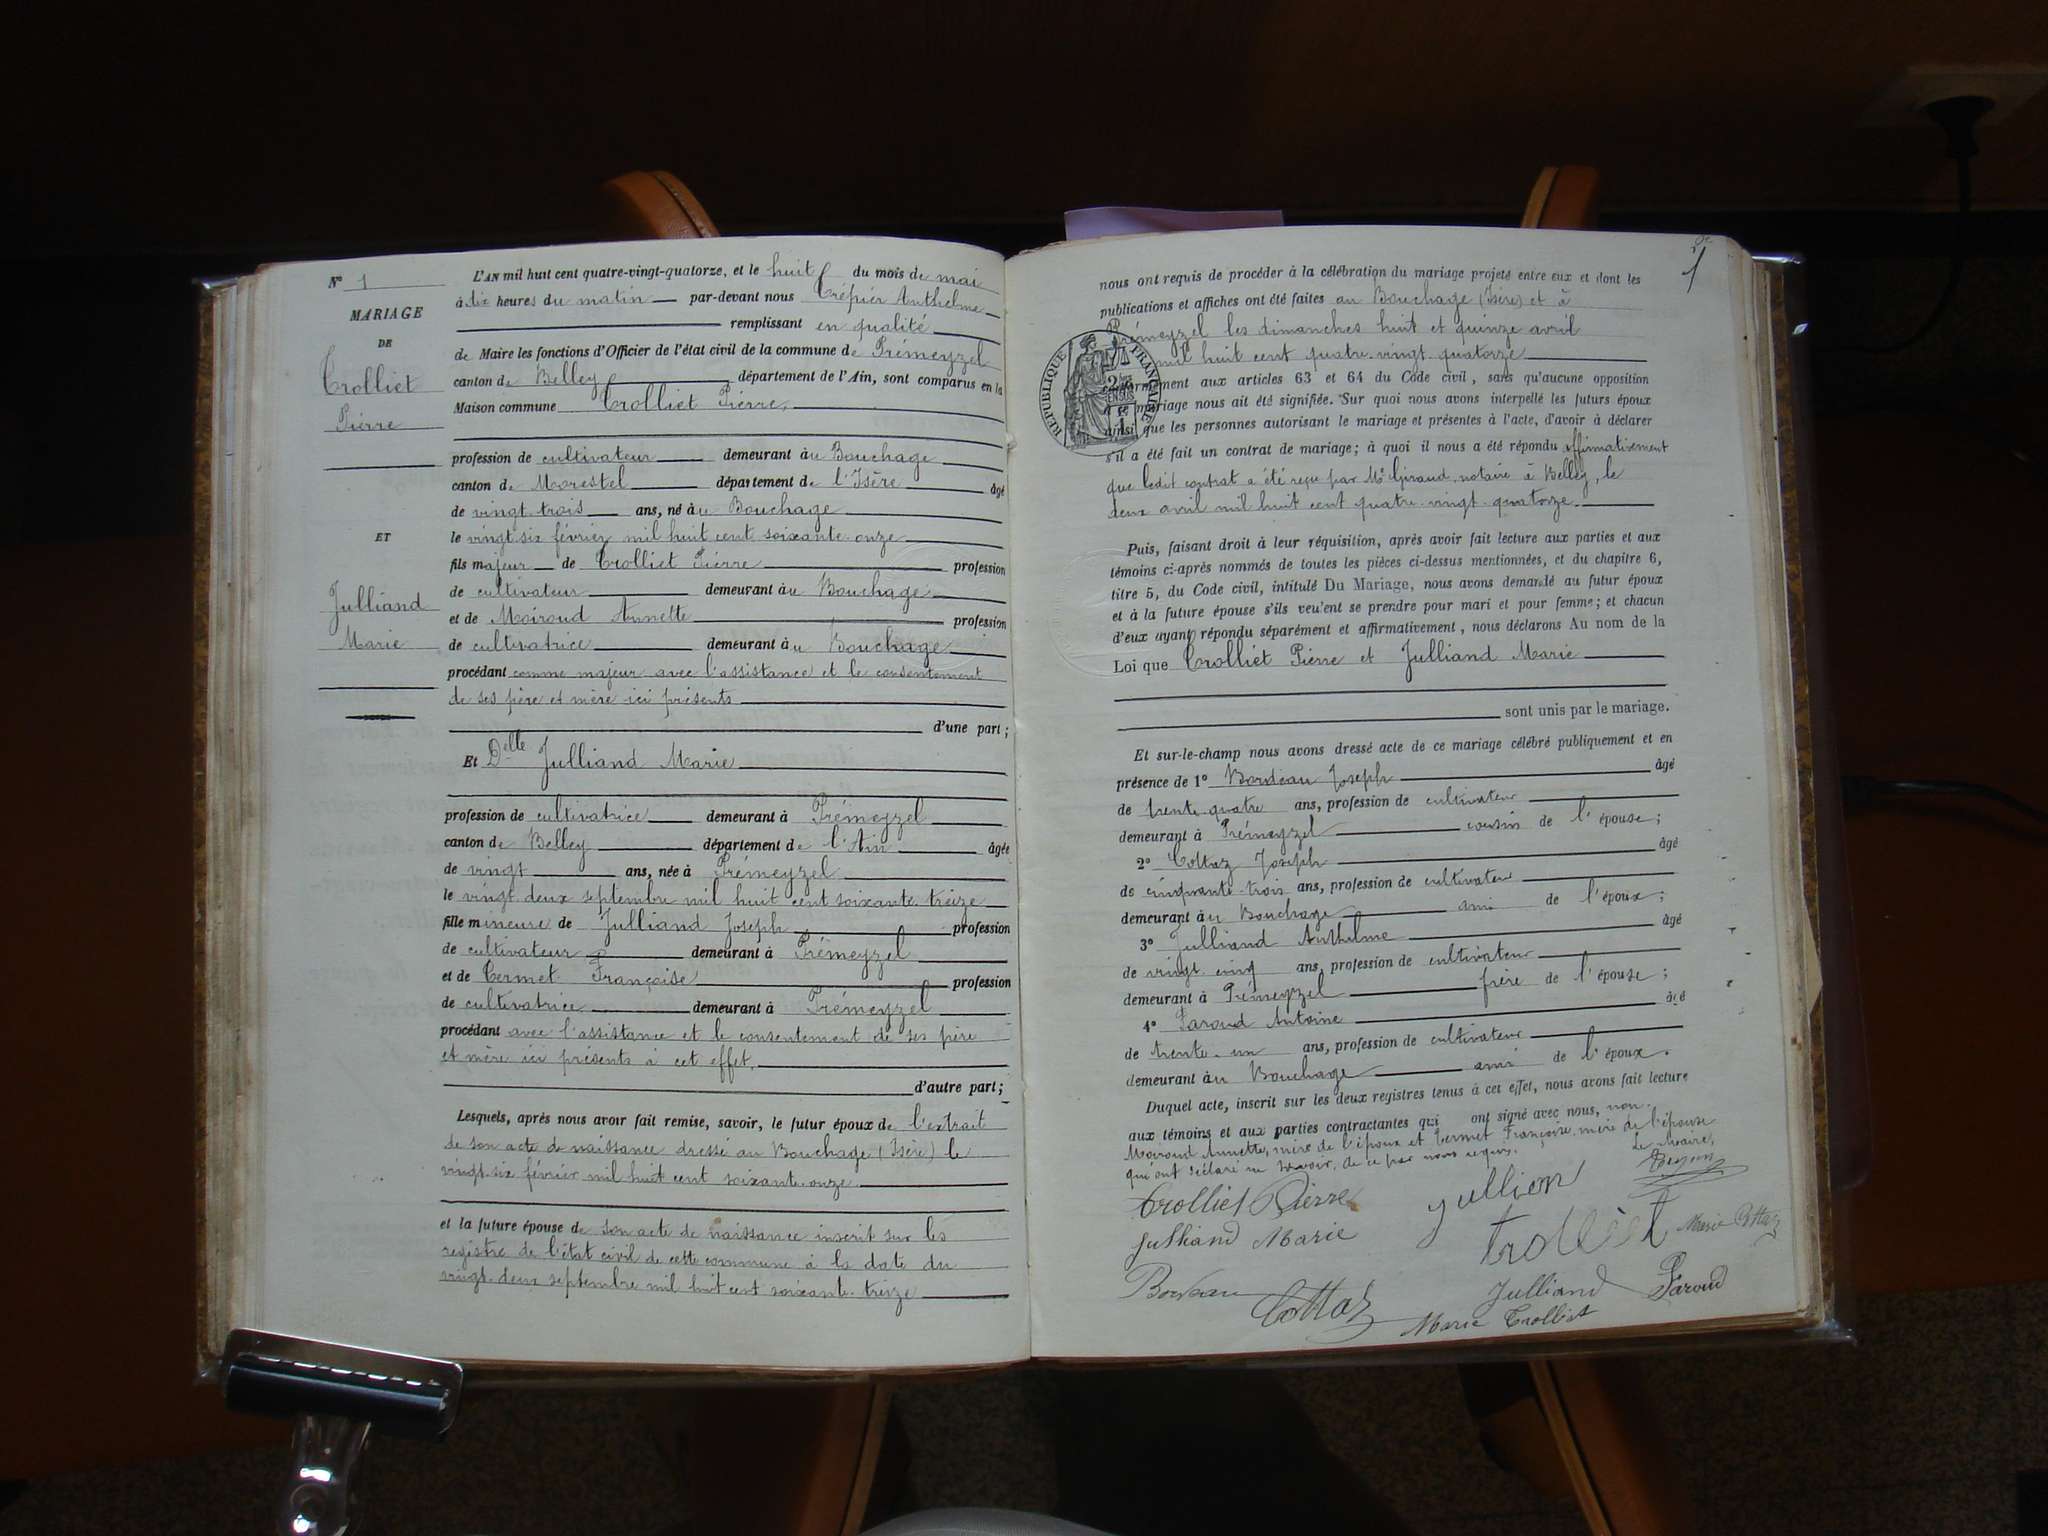 N° 1
MARIAGE
DE
Trolliet
Pierre
ET
Julliand
Marie
L'AN mil huit cent quatre-vingt-quatorze, et le huit du mois de mai
à dix heures du matin par-devant nous Crépier Anthelme
remplissant en qualité
de Maire les fonctions d'Officier de l'état civil de la commune de Prémeyzel
canton de Belley département de l'Ain, sont comparus en la
Maison commune Trolliet Pierre,
profession de cultivateur demeurant à u Bouchage
canton de Morestel département de l'Isère âgé
de vingt-trois ans, né à u Bouchage
le vingt-six février mil huit cent soixante-onze
fils majeur de Trolliet Pierre profession
de cultivateur demeurant à u Bouchage
et de Moiroud Annette profession
de cultivatrice demeurant à u Bouchage
procédant comme majeur avec l'assistance et le consentement
de ses père et mère ici présents
d'une part;
Et Delle Julliand Marie
profession de cultivatrice demeurant à Prémeyzel
canton de Belley département de l'Ain âgée
de vingt ans, née à Prémeyzel
le vingt-deux septembre mil huit cent soixante-treize
fille mineure de Julliand Joseph profession
de cultivateur demeurant à Prémeyzel
et de Termet Françoise profession
de cultivatrice demeurant à Prémeyzel
procédant avec l'assistance et le consentement de ses père
et mère ici présents à cet effet,
d'autre part;
Lesquels, après nous avoir fait remise, savoir, le futur époux de l'extrait
de son acte de naissance dressé au Bouchage (Isère) le
vingt-six février mil huit cent soixante-onze
et la future épouse de son acte de naissance inscrit sur les
registre de l'état civil de cette commune à la date du
vingt-deux septembre mil huit cent soixante-treize
1
nous ont requis de procéder à la célébration du mariage projeté entre eux et dont les
publications et affiches ont été faites au Bouchage (Isère) et à
Prémeyzel les dimanches huit et quinze avril
mil huit cent quatre-vingt-quatorze
REPUBLIQUE FRANÇAISE
conformément aux articles 63 et 64 du Code civil, sans qu'aucune opposition
à ce mariage nous ait été signifiée. Sur quoi nous avons interpellé les futurs époux
ainsi que les personnes autorisant le mariage et présentes à l'acte, d'avoir à déclarer
s'il a été fait un contrat de mariage; à quoi il nous a été répondu affirmativement
que ledit contrat a été reçu par Me Giraud, notaire à Belley, le
deux avril mil huit cent quatre-vingt-quatorze.
Puis, faisant droit à leur réquisition, après avoir fait lecture aux parties et aux
témoins ci-après nommés de toutes les pièces ci-dessus mentionnées, et du chapitre 6,
titre 5, du Code civil, intitulé Du Mariage, nous avons demandé au futur époux
et à la future épouse s'ils veulent se prendre pour mari et pour femme; et chacun
d'eux ayant répondu séparément et affirmativement, nous déclarons Au nom de la
Loi que Trolliet Pierre et Julliand Marie
sont unis par le mariage.
Et sur-le-champ nous avons dressé acte de ce mariage célébré publiquement et en
présence de 1° Bordeau Joseph âgé
de trente-quatre ans, profession de cultivateur
demeurant à Prémeyzel cousin de l'épouse;
2° Cottaz Joseph âgé
de cinquante-trois ans, profession de cultivateur
demeurant à u Bouchage ami de l'époux;
3° Julliand Anthelme âgé
de vingt-cinq ans, profession de cultivateur
demeurant à Prémeyzel frère de l'épouse;
4° Paroud Antoine âgé
de trente-un ans, profession de cultivateur
demeurant à u Bouchage ami de l'époux.
Duquel acte, inscrit sur les deux registres tenus à cet effet, nous avons fait lecture
aux témoins et aux parties contractantes qui ont signé avec nous, non
Moiroud Annette, mère de l'époux et Termet Françoise, mère de l'épouse
qui ont déclaré ne savoir, de ce par nous requis.
Le Maire,
Trolliet Pierre Jullien
Julliand Marie trolliet Marie Cottaz
Bordeau Cottaz Julliand Paroud
Marie Trolliet